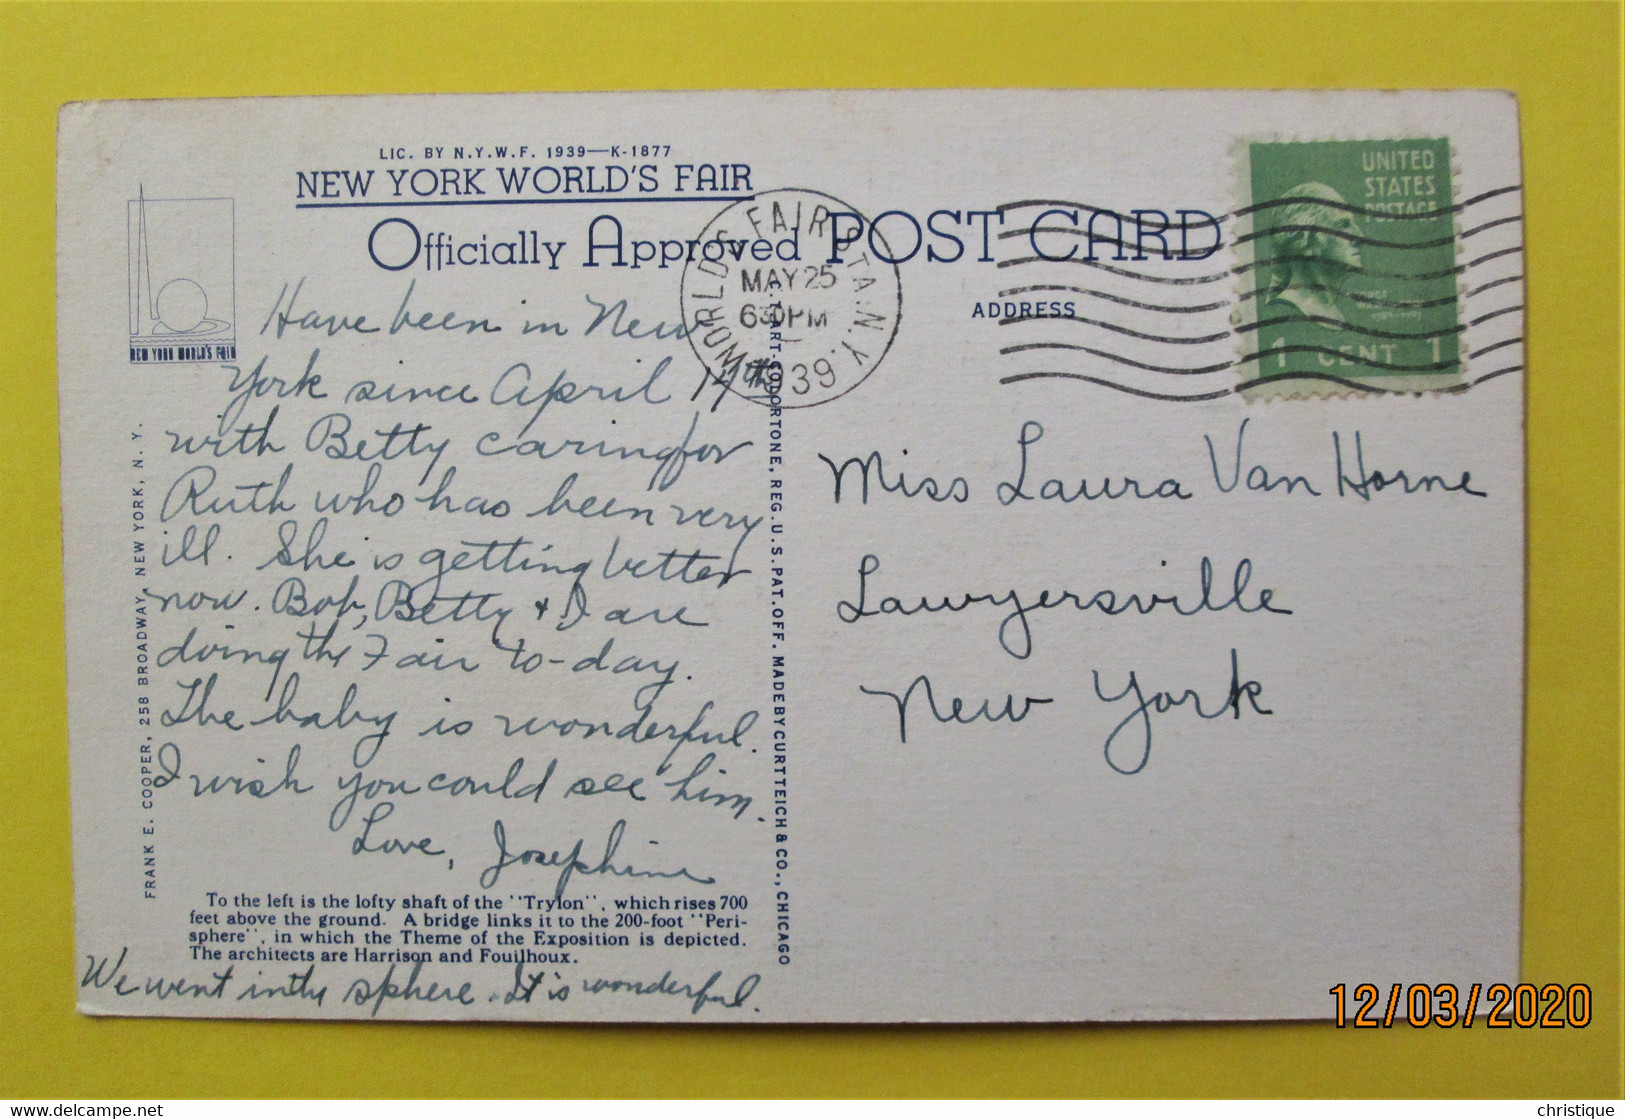 LIC. BY N.Y.W.F. 1939—K-1877
NEW YORK WORLD'S FAIR
Officially Approved POST CARD
NEW YORK WORLD'S FAIR
WORLD'S FAIR STA. N.Y.
MAY 25
630PM
1939
UNITED
STATES
POSTAGE
1 CENT 1
ADDRESS
Have been in New
York since April 17th
with Betty caring for
Ruth who has been very
ill. She is getting better
now. Bob, Betty + I are
doing the Fair to-day.
The baby is wonderful.
I wish you could see him.
Love, Josephine
To the left is the lofty shaft of the "Trylon", which rises 700
feet above the ground. A bridge links it to the 200-foot "Peri-
sphere", in which the Theme of the Exposition is depicted.
The architects are Harrison and Fouilhoux.
We went in the sphere. It is wonderful.
FRANK E. COOPER, 258 BROADWAY, NEW YORK, N. Y.
C.T. ART-COLORTONE, REG. U.S. PAT. OFF. MADE BY CURT TEICH & CO., CHICAGO
Miss Laura Van Horne
Lawyersville
New York
12/03/2020
© delcampe.net
christique